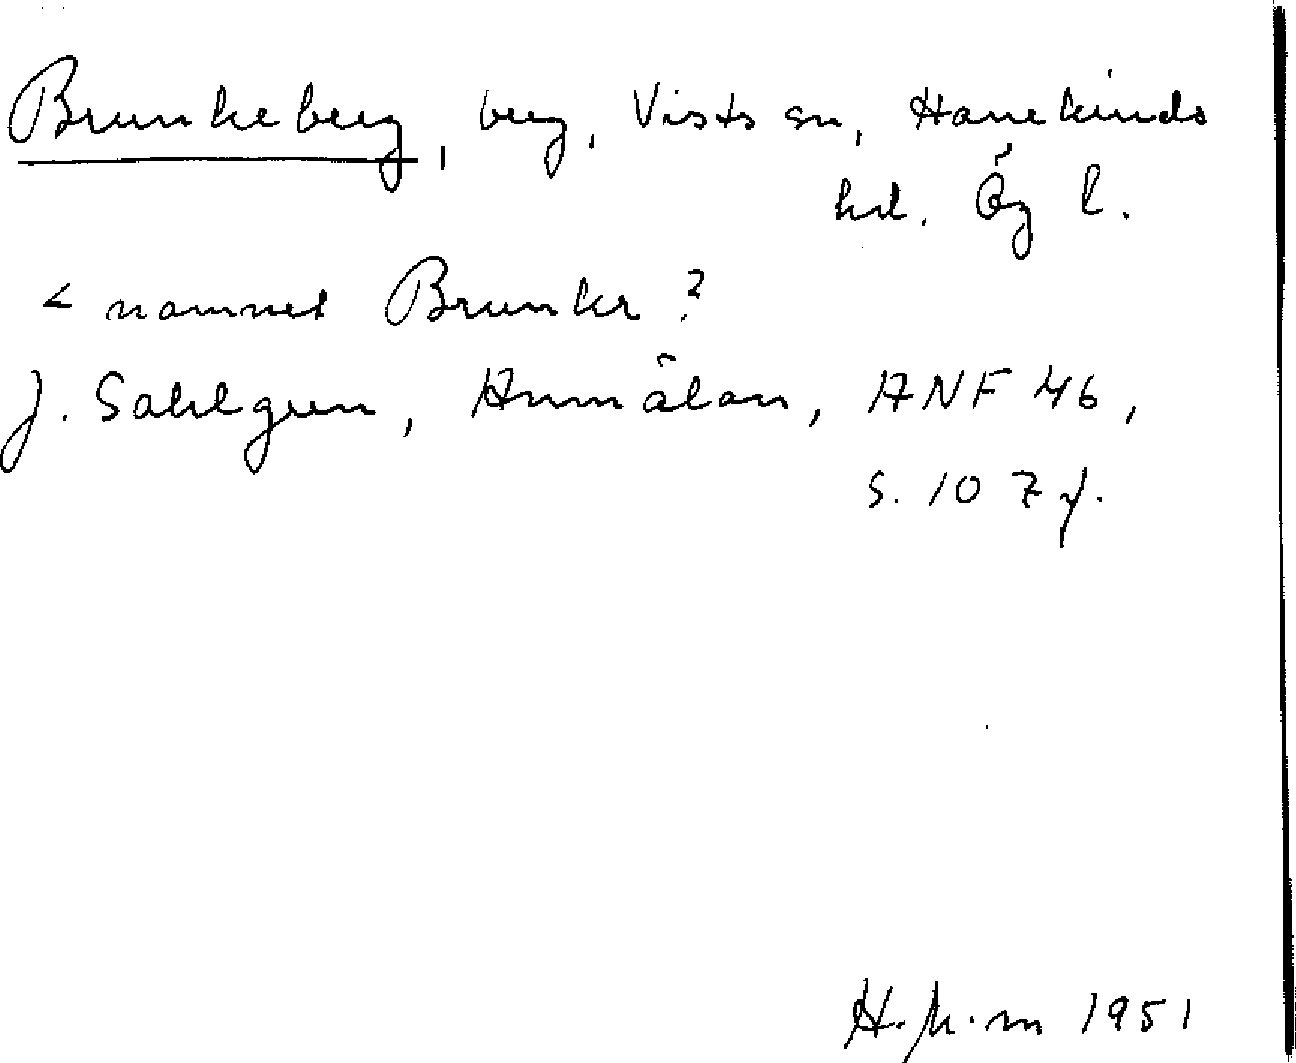 Brunkeberg, berg, Vists sn, Hanekinds
hd. Ög l.
< namnet Brunkr?
J. Sahlgren, Anmälan, ANF 46,
s. 107 f.
1951